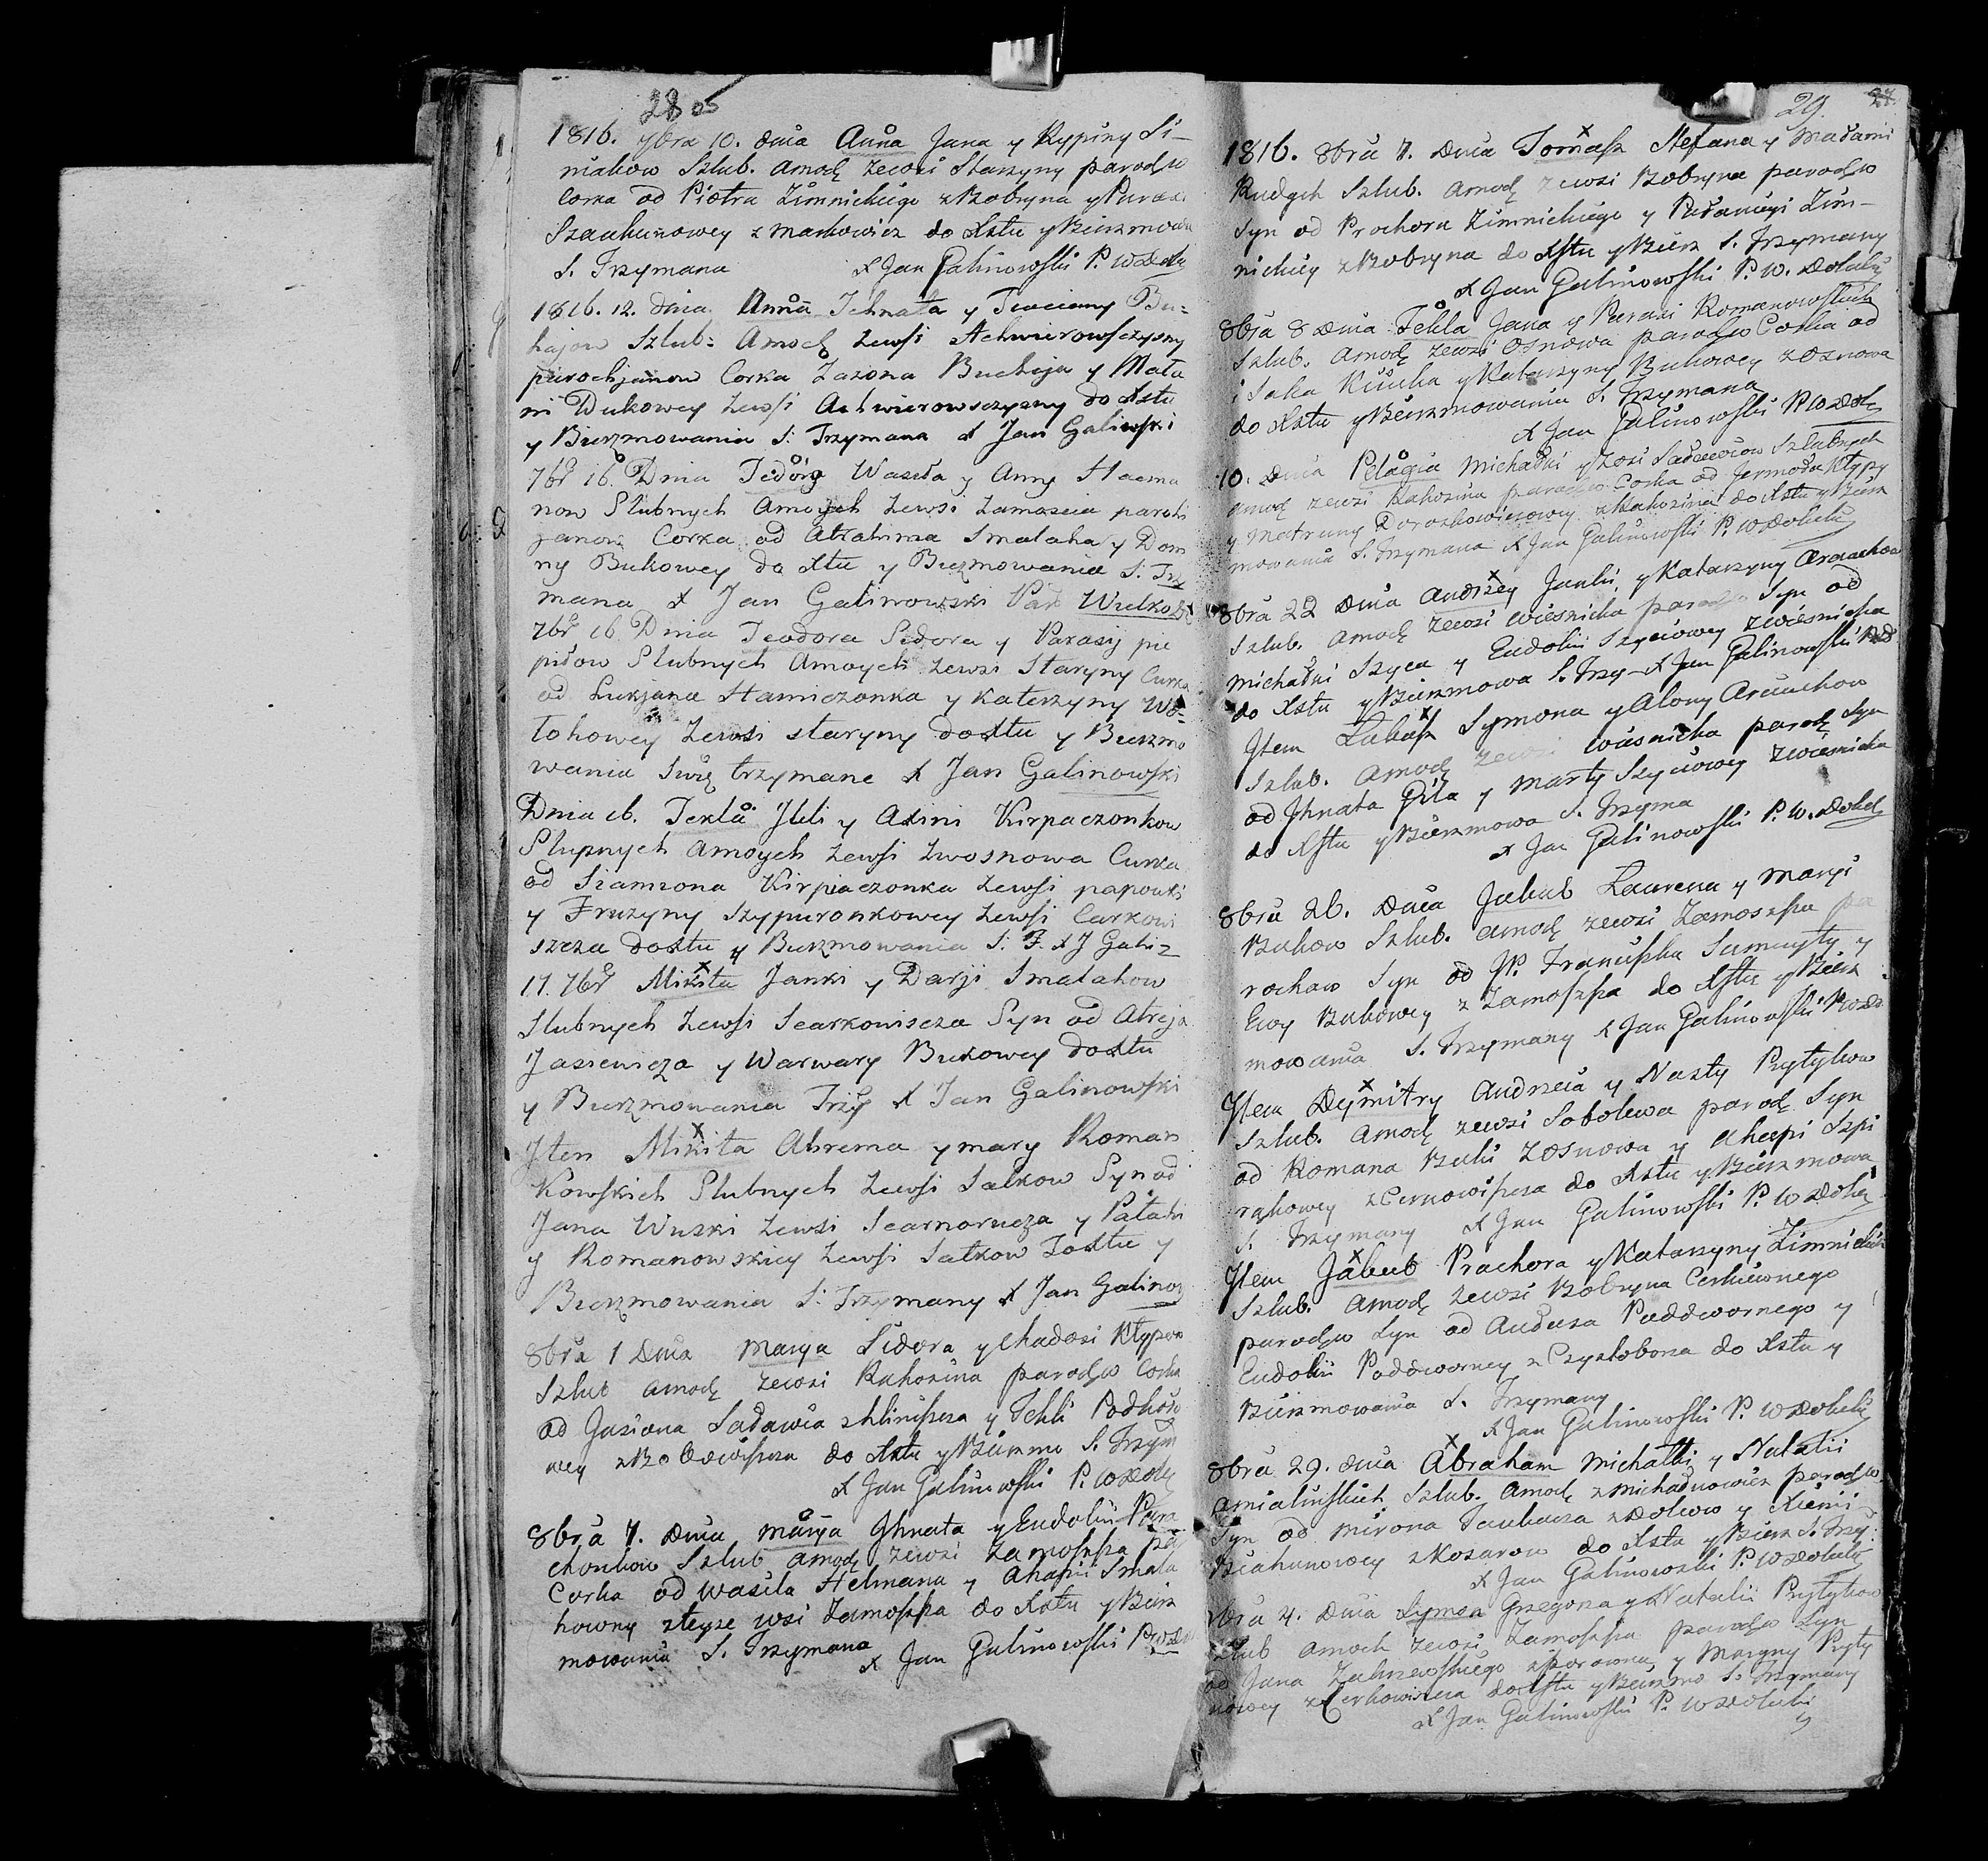 28
1816. 7bra 10. dnia Anna Jana y Krypiny Si-
niakow Szlub. amodz zewsi Starzyny parodzw
Corka od Piotra Zimnickiego z Bobryna y Parasi
Szauhunowey z Markowicz do Xstu y Bierzmowa
S. Trzymana X Jan Galinowski P. W Dol
1816. 12. dnia Anna Jehnata y Tacianny Bu=
hajow Szlub: Amodz zewsi Achwierowszczyzny
parochjanow Corka Zazona Buchaja y Mała
ni Dukowey zewsi Achwierowszczyzny do Xstu
y Bierzmowania S: Trzymana X Jan Galinski
7br 16. Dnia Tedora Wasila y Anny Haema
now Slubnych Amoych zewsi Zamoscia parohi
janow Corka od Abrahima Smalaha y Dom
ny Bukowey do Xtu y Buzmowania S: Trzy
mana X Jan Galinowski Par Wielko
7br 16. Dnia Teodora Sidora y Parasij pie
pidow Slubnych Amoych zewsi Staryny Curka
od Lukjana Hamiczonka y Katerzyny Wo-
tohowey zewsi staryny do Xtu y Buezmo
wania Swię trzymane X Jan Galinowski
Dnia 16. Tekla Jlli y Axini Kirpaczonkow
Slupnych Amoych zewsi Zwosnowa Curka
od Siamiona Kirpiaczonka zewsi papouki
y Fruzyny Szypuronkowey zewsi Carkowi
szcza do Xtu y Buezmowania S: T. X J Gali=
17. 7br Mikita Janki y Darji Smalahow
Slubnych zewsi Searkowiscza Syn od Atreja
Jasiewicza y Warwary Bukowey do Xtu
y Buezmowania Trzy X Jan Galinowski
Jten Mikita Ahrema y mary Roman
Kowskich Slubnych zewsi Salkow Syn od
Jana Wuski zewsi Searnorucza y Pałahi
y Romanowskiey zewsi Satkow do Xtu y
Buezmowania S: Trzymany X Jan Galinow
8bra 1 Dnia Marya Sidora y Chadosi Kłypow
Szlub amodz zewsi Rahozina parodzw Corka
od Jasiona Sadawia z hliniszcza y Tekli Podhoro
wey z do Xstu y Bierzmo S. Trzym
X Jan Galinowski P. W Dol
8bra 7. dnia Marya Jhnata y Eudokii Para
chonkow Szlub amodz zewsi Zamoszsza par
Corka od Wasila Helmana y Ahapii Smala
howny zteyze wsi Zamoszsza do Xstu y Bierz
mowania S. Trzymana X Jan Galinowski P W Do
29.
1816. 8bra 7. dnia Tomasz Stefana y Madami
Rudych Szlub. amodz zewsi Bobryna parodzw
Syn od Prochora Zimnickiego y Pałanieyi Zim-
nickiey z Bobryna do Xstu y Bierz S. Trzymany
X Jan Galinowski P. W. Dolecki
8bra 8 dnia Tekla Jana y Parasi Romanowskich
Szlub. amodz zewsi Osnowa parodzw Corka od
isaka Kiicka y Katarzyny Bukowey z Osnowa
do Xstu y Bierzmowania S. Trzymana
X Jan Galinowski P W Dol
10. dnia Pelagia Michałki y Zosi Sadewiow Szlubnych
amodz zewsi Rahozina parodzw Corka od Jermoła Kłypy
y Matruny Doroszkowiczowey z Rahozina do Xstu y Bierz
mowania S. Trzymana X Jan Galinowski P. W Dolecki
8bra 22 dnia Andrzey Janki y Katarzyny Arciuchow
Szlub. amodz zewsi Wiesnicka parodz Syn od
Michałki Szyca y Eudokii Szycowey zwiesnicka
do Xstu y Bierzmowa S. Trzy- X Jan Galinowski P D
Jtem Łukasz Symona y Alony Arciuchow
Szlub. amodz zewsi Wiesnicka parodz Syn
od Jhnata Gila y Marty Szycowey zwiesnicka
do Xstu y Bierzmowa S. Trzyma
X Jan Galinowski P. W. Dolecki
8bra 26. dnia Jakub Laurena y Maryi
Bukow Szlub. amodz zewsi Zamoszsza pa
rochow Syn od JP. Franciszka y
Ewy Bukowey z Zamoszsza do Xstu y Bierz
mowania S. Trzymany X Jan Galinowski P W Do
Jtem Dymitry Andrzeia y Nasty Prytykow
Szlub. amodz zewsi Sobolewa parodz Syn
od Romana Buki z Osnowa y Ahapi Szpi
rąkowey z Cernowiszcza do Xstu y Bierzmowa
S. Trzymany X Jan Galinowski P. W Dolec
Jtem Jakub Prachora y Katarzyny Zimnickich
Szlub. amodz zewsi Bobryna Cerkiewnego
parodzw Syn od Audaza Paddwornego y
Eudokii Paddworney z Czysłobona do Xstu y
Bierzmowania S. Trzymany
X Jan Galinowski P. W Dolecki
8bra 29. dnia Abraham Michałki y Natalii
Amialinskich Szlub. amodz z michałnowicz parodzw
Syn od Mirona z dolcow y Xieni
Biahunowey z Kozarow do Xstu y Bierz S. Trzy:
X Jan Galinowski P. W Dolecki
9bra 4. dnia Symon Grzegorza y Natalii Prytykow
Szlub amodz zewsi Zamoszsza parodzw Syn
od Jana Zakrzewskiego y Maryny Pryty
kowey z Cerkowiszcza do Xstu y Bierzmo S. Trzymany
X Jan Galinowski P. W Dolecki